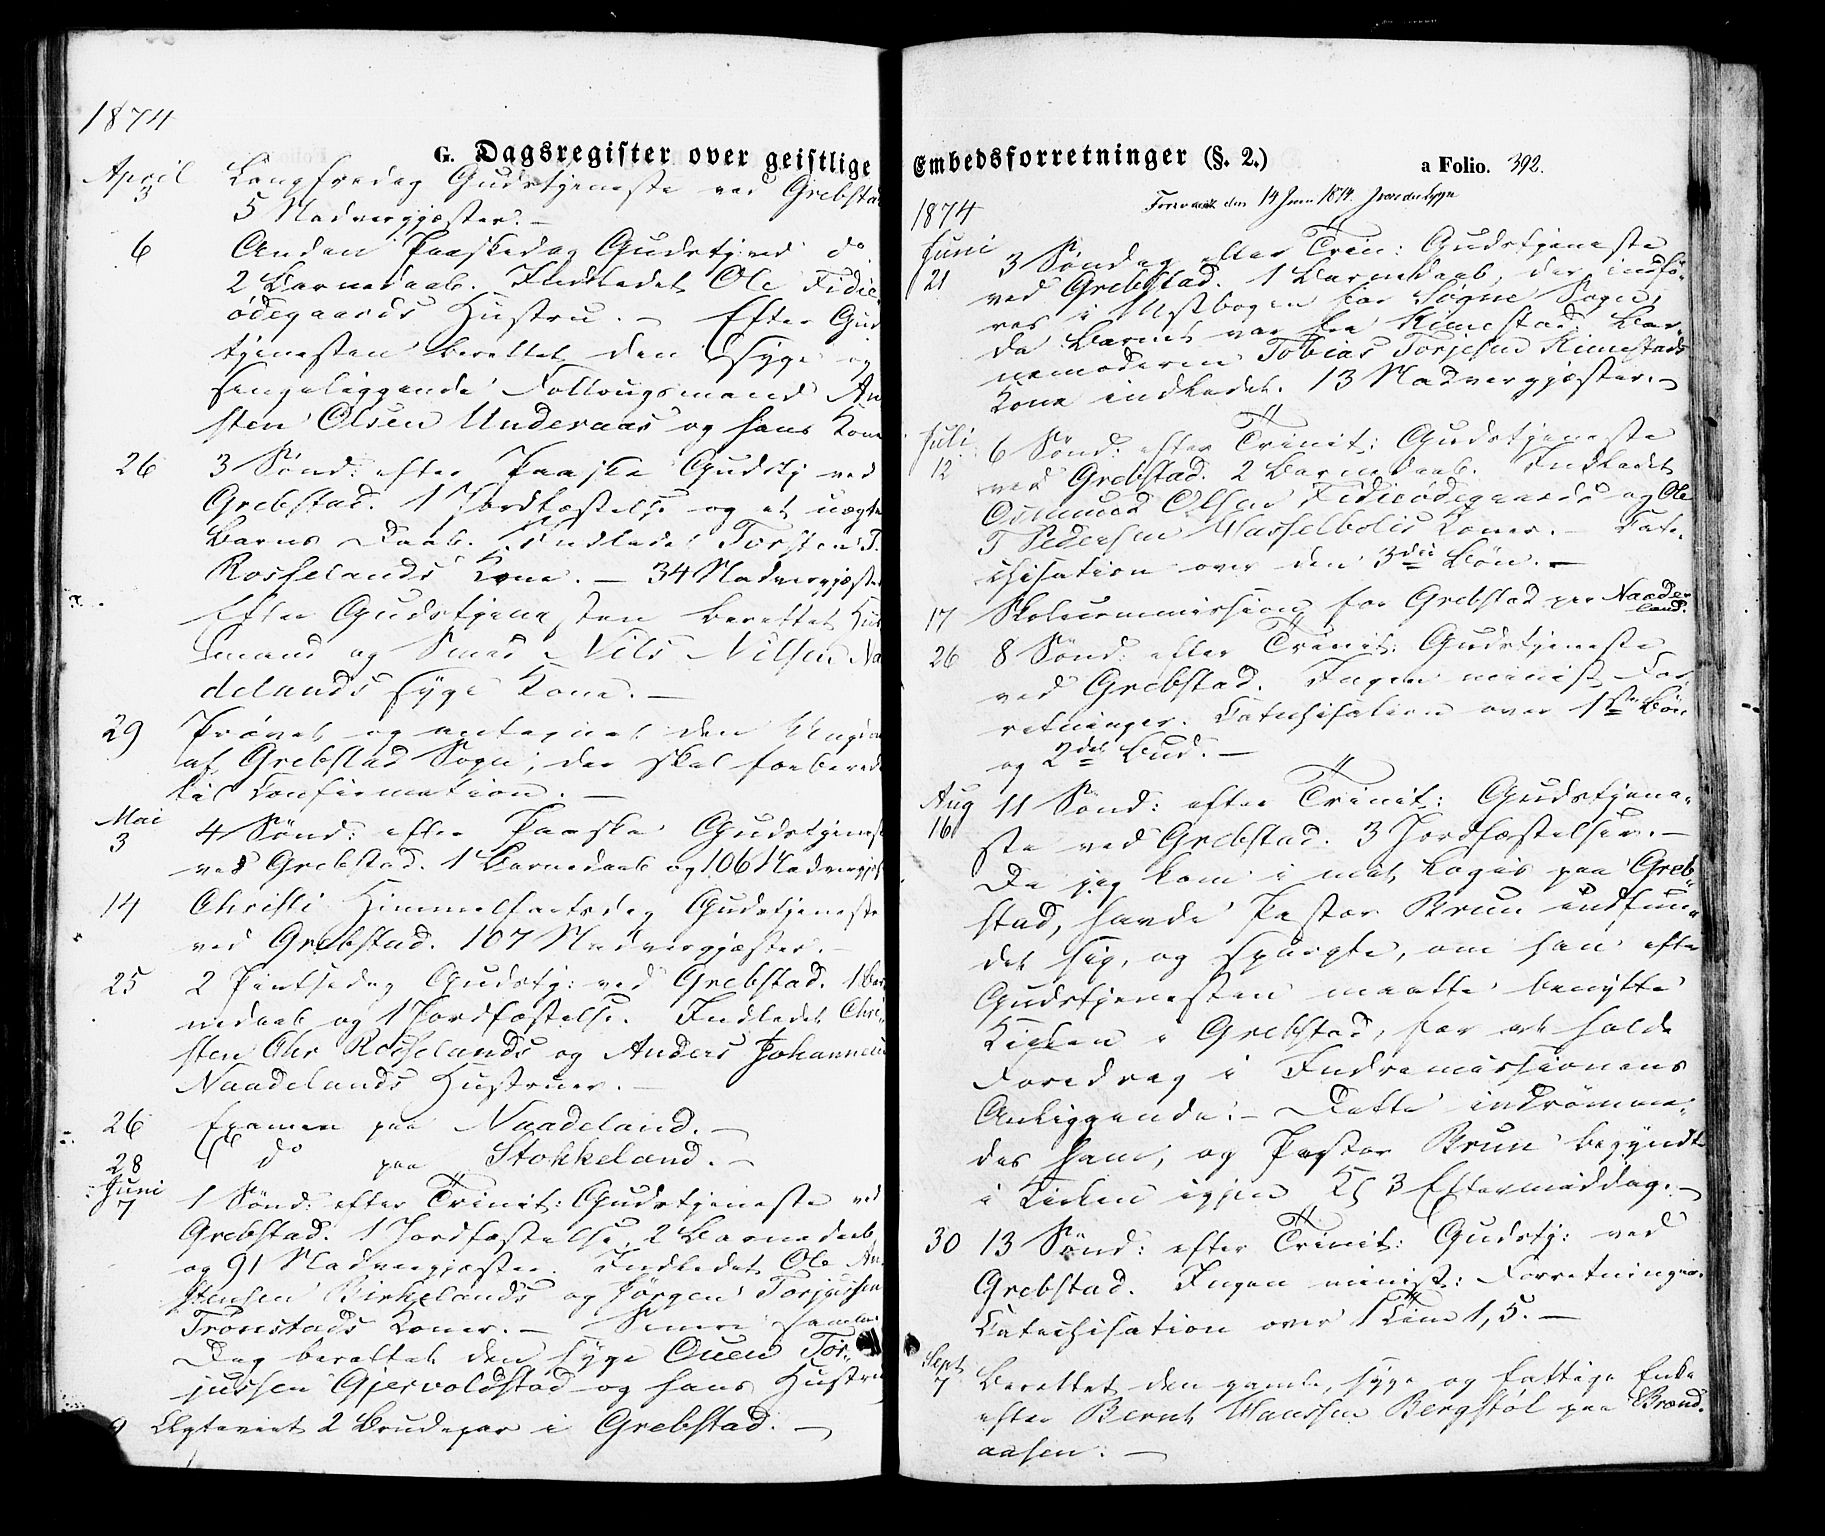 1874
G. Dagsregister over geistlige
April 3 Langfredag Gudstjeneste ved Grebstad
5 Nadvergjæster. –
6 Anden Paaskedag Gudstj ved do.
2 Barnedaab. Indledet Ole Fidie-
ødegaards Hustru. – Efter Gud
tjenesten berettet den syge og
sengeliggende Follougsmand An
sten Olsen Underaas og hans Kone
26 3 Sønd: efter Paaske Gudstj ved
Grebstad. 1 Jordfæstelse og et uægte
Barns Daab. Indledet Torsten T.
Rosselands Kone. – 34 Nadvergjæst
Efter Gudstjenesten berettet Hus
mand og Smed Nils Nilsen Na
delands syge Kone. –
29 Prøvet og antegnet den Ungdom
af Grebstad Sogn, der skal forberede
til Confirmation. –
Mai 3 4 Sønd: efter Paaske Gudstjenest
ved Grebstad. 1 Barnedaab og 106 Nadvergjst
14 Christi Himmelfartsdag Gudstjeneste
ved Grebstad. 107 Nadvergjæster. –
25 2 Pintsedag Gudstj: ved Grebstad. 1 Bar
nedaab og 1 Jordfæstelse. Indledet Chri-
sten Chr Rosselands og Anders Johannesen
Naadelands Hustruer. –
26 Examen paa Naadeland. –
28 do paa Stokkeland. –
Juni 7 1 Sønd: efter Trinit: Gudstjeneste ved
Grebstad. 1 Jordfæstelse, 2 Barnedaab
og 91 Nadvergjæster. Indledet Ole An-
stensen Birkelands og Jørgen Torjussen
Trønstads Koner. – Senere samme
Dag berettet den syge Ouen Tor-
jussen Gjervoldstad og hans Hustru
9 Ægteviet 2 Brudepar i Grebstad. –
Embedsforretninger (§. 2.)
a Folio. 392.
den 14 Juni 1874.
1874
Juni 21 3 Søndag efter Trin: Gudstjeneste
ved Grebstad. 1 Barnedaab, der indfø-
res i Mstbogen for Søgne Sogn,
da Barnet var fra Kimestad. Bar-
nemoderen Tobias Torjesen Kimestads
Kone indledet. 13 Nadvergjæster. –
Juli 12 6 Sønd: efter Trinit: Gudstjeneste
ved Grebstad. 2 Barnedaab. Indledet
Osmund Olsen Fidieødegaards og Ole
T Pedersen Hasselbolis Koner. – Cate-
chisation over den 3die Bøn. –
17 Skolecommission for Grebstad paa Naade
land.
26 8 Sønd: efter Trinit: Gudstjeneste
ved Grebstad. Ingen minist. For
retninger. Catechisation over 1ste Bøn
og 2det Bud. –
Aug 16 11 Sønd: efter Trinit: Gudstjene-
ste ved Grebstad. 3 Jordfæstelser. –
Da jeg kom i mit Logis paa Greb-
stad, havde Pastor Brun indfun-
det sig, og spurgte, om han efter
Gudstjenesten maatte benytte
Kirken i Grebstad, for at holde
Foredrag i Indremissionens
Anliggende. – Dette indrømme-
des ham, og Pastor Brun begyndte
i Kirken igjen Kl 3 Eftermiddag. –
30 13 Sønd: efter Trinit: Gudstj: ved
Grebstad. Ingen minist: Forretninger.
Catechisation over 1 Tim 1, 5. –
Sept 7 Berettet den gamle, syge og fattige Enke
efter Bernt Hanssen Bergstøl paa Brænd-
aasen. –